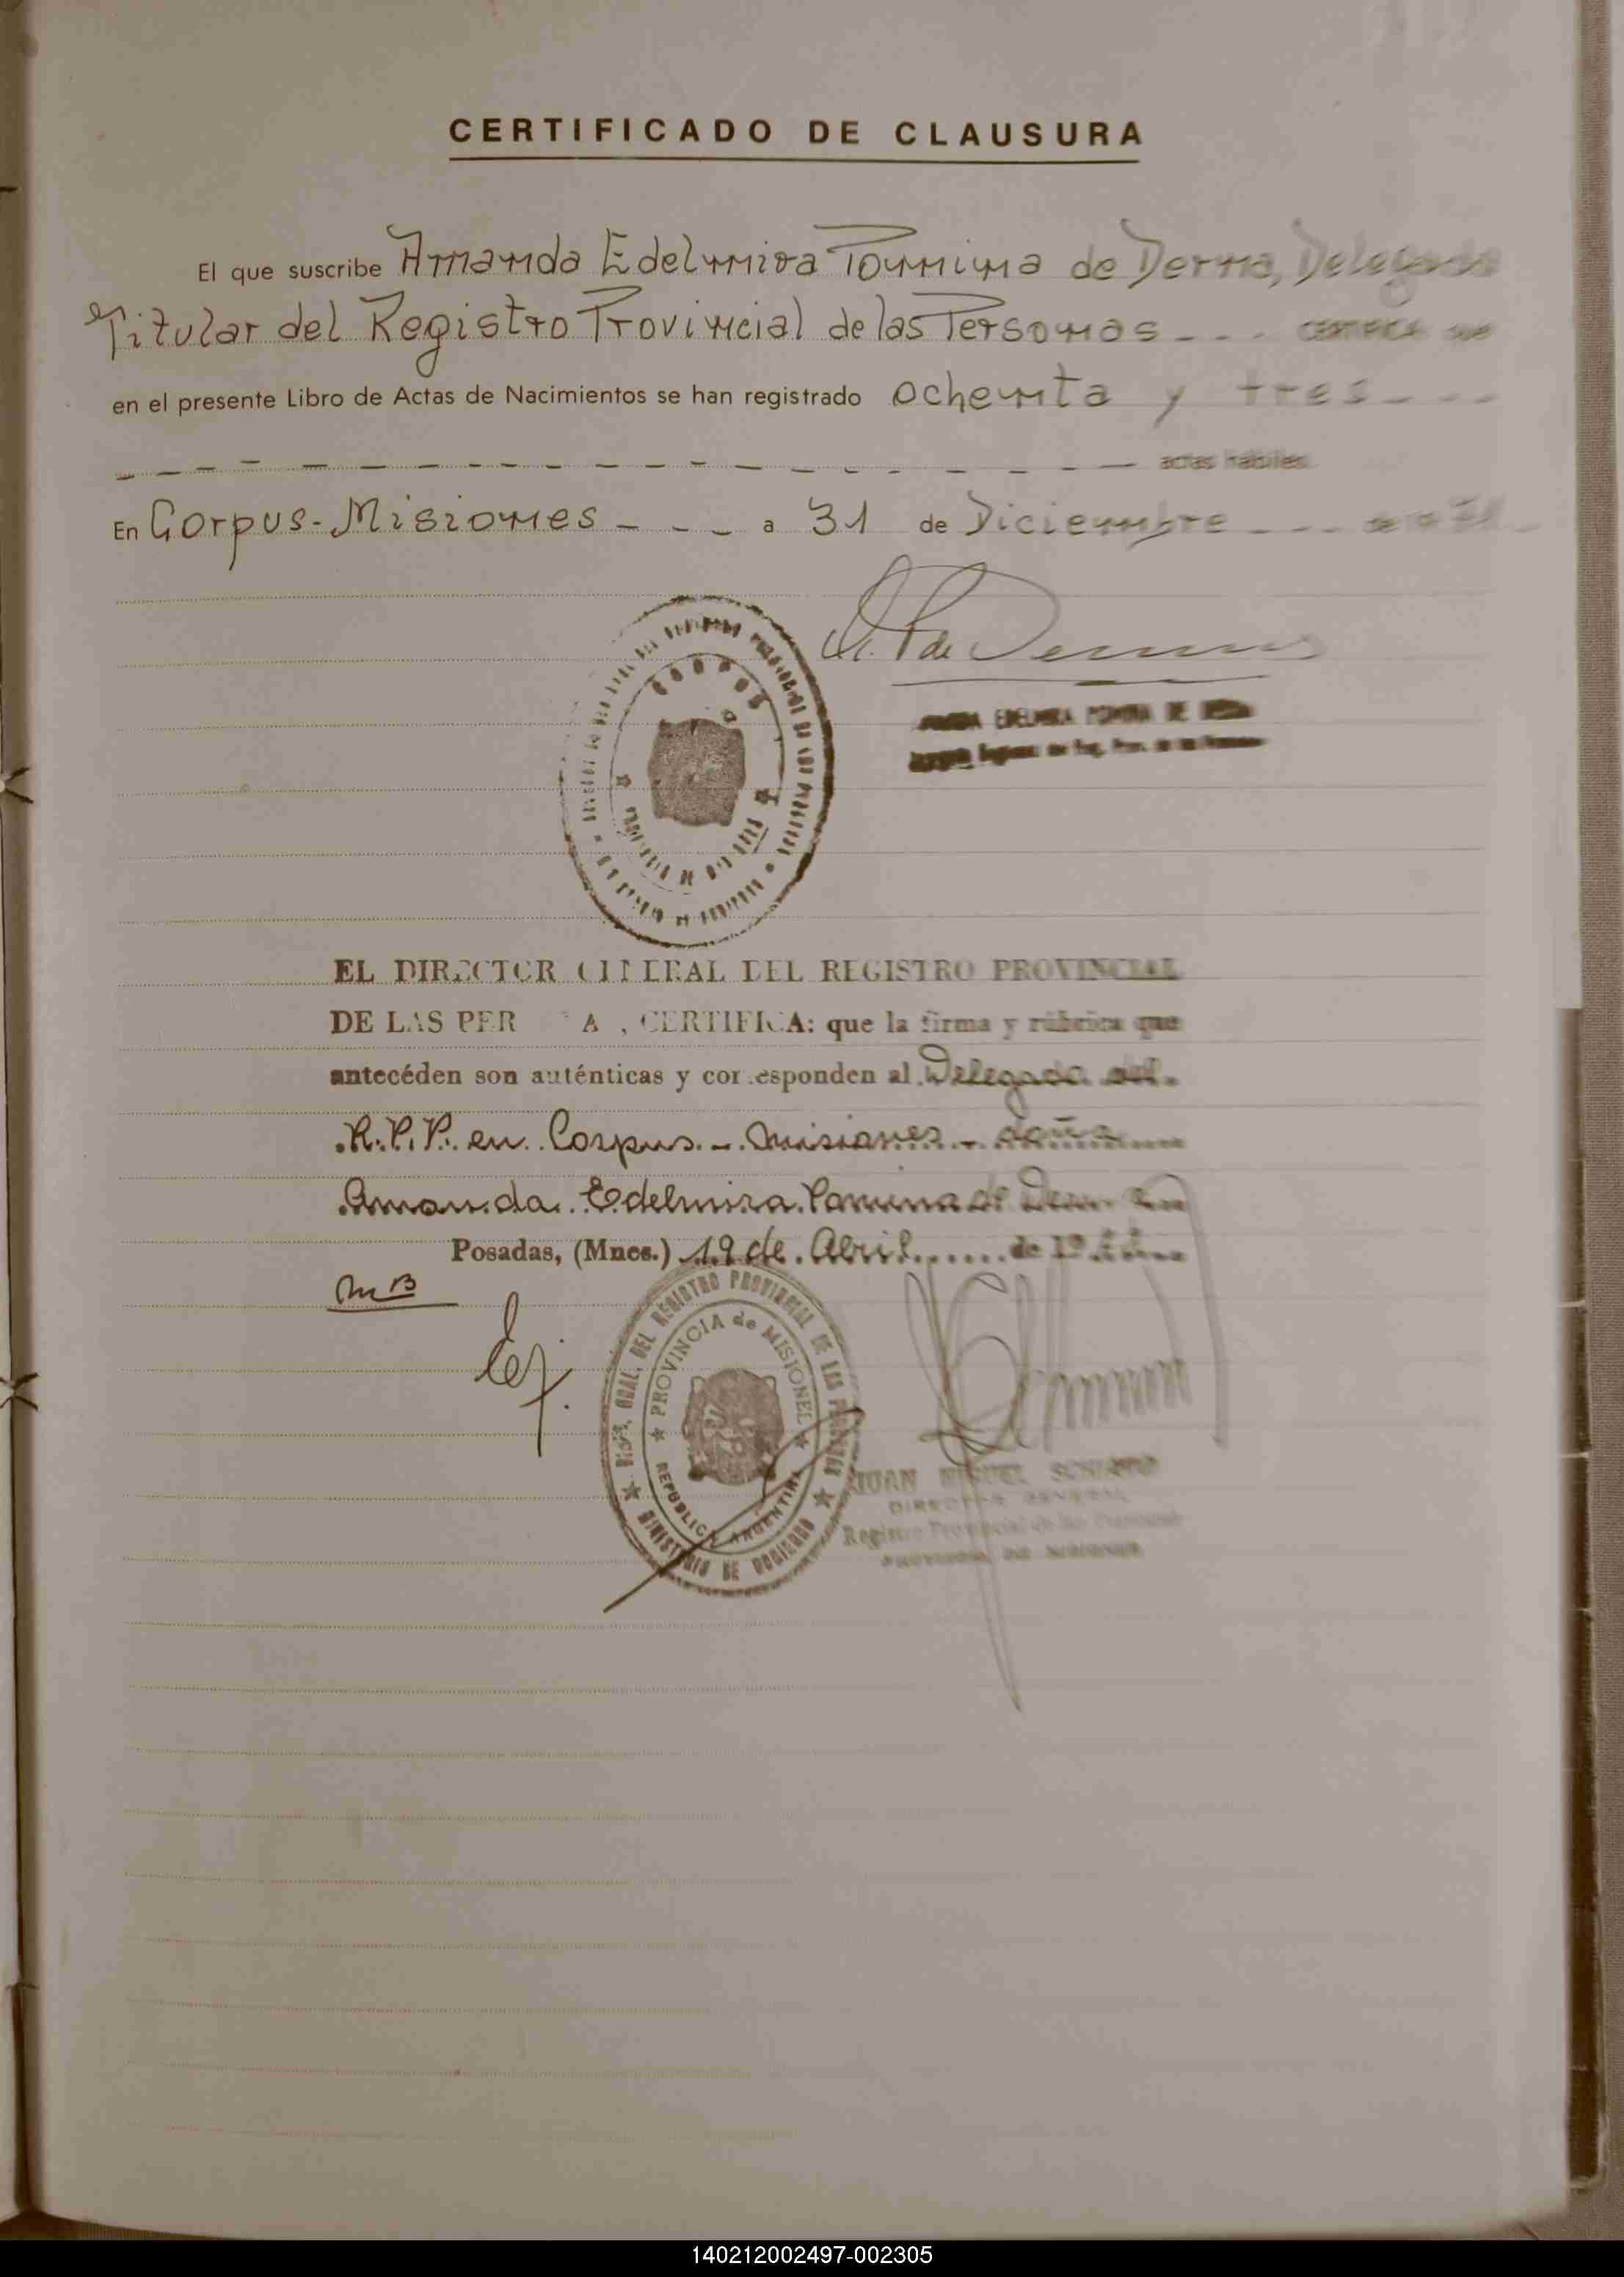 CERTIFICADO DE CLAUSURA
El que suscribe Amanda Edelmira Pomima de Derna, Delegada
Titular del Registro Provincial de las Personas - - - CERTIFICA que
en el presente Libro de Actas de Nacimientos se han registrado Ochenta y tres - - -
actas hábiles.
En Corpus - Misiones - - - a 31 de Diciembre - - - de
CORPUS
EL DIRECTOR GENERAL DEL REGISTRO PROVINCIAL
DE LAS PER A , CERTIFICA: que la firma y rúbrica que
antecéden son auténticas y corresponden al Delegada del
R.P.P. en Corpus - Misiones - doña
Amanda Edelmira de
Posadas, (Mnes.) 19 de Abril de 19
MB
DIR. GRAL. DEL REGISTRO PROVINCIAL DE LAS PERSONAS
PROVINCIA de MISIONES
REPUBLICA ARGENTINA
MINISTERIO DE GOBIERNO
JUAN MIGUEL
DIRECTOR GENERAL
Registro Provincial de las Personas
PROVINCIA DE MISIONES
140212002497-002305